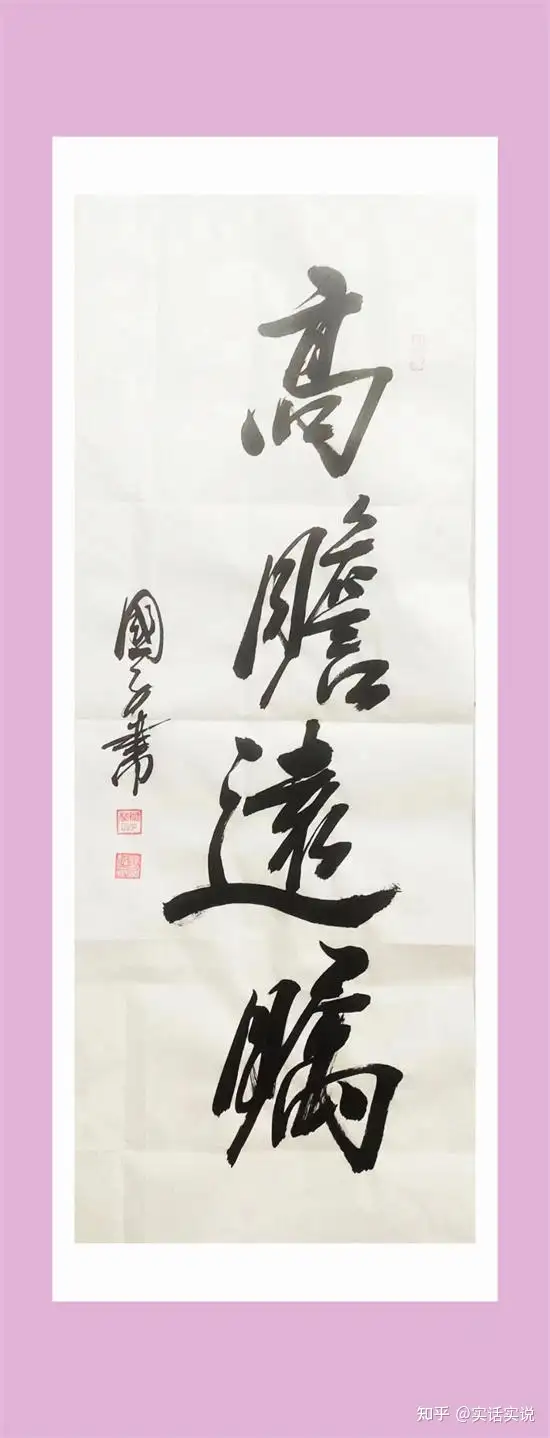 高瞻遠矚
國
知乎 @实话实说